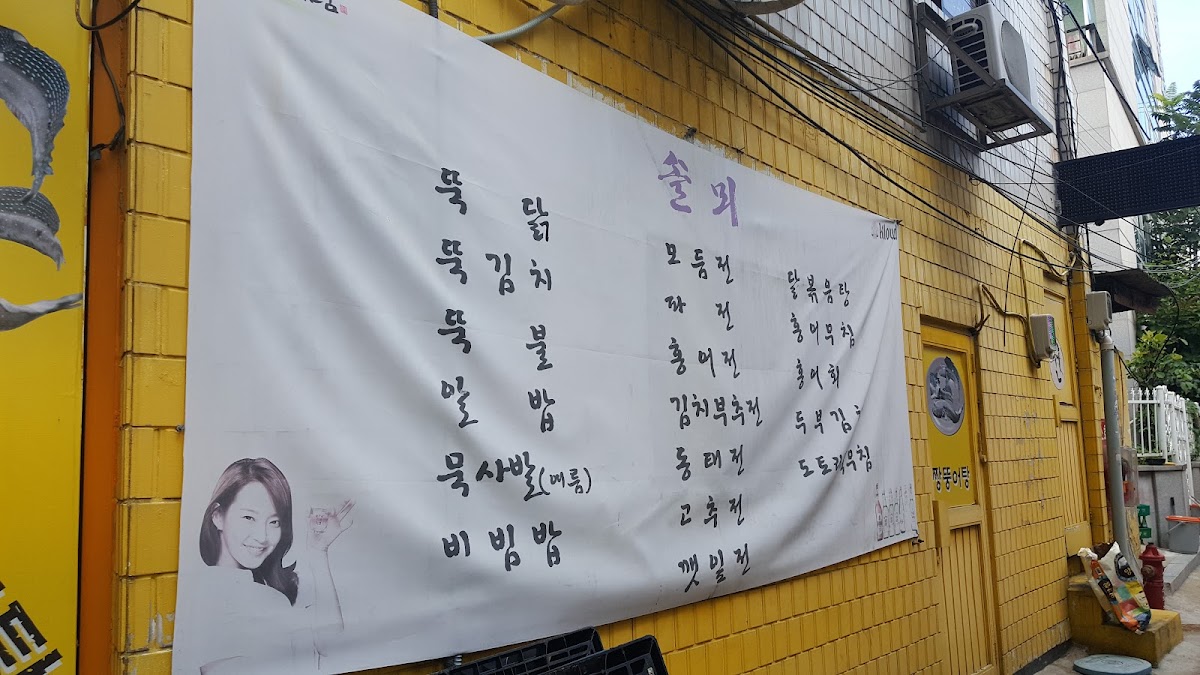 솔뫼
뚝닭
뚝김치
뚝불
알밥
묵사발(여름)
비빔밥
모듬전
파전
홍어전
김치부추전
동태전
고추전
깻잎전
닭볶음탕
홍어무침
홍어회
두부김
도토리무침
짱뚱어탕
kloud